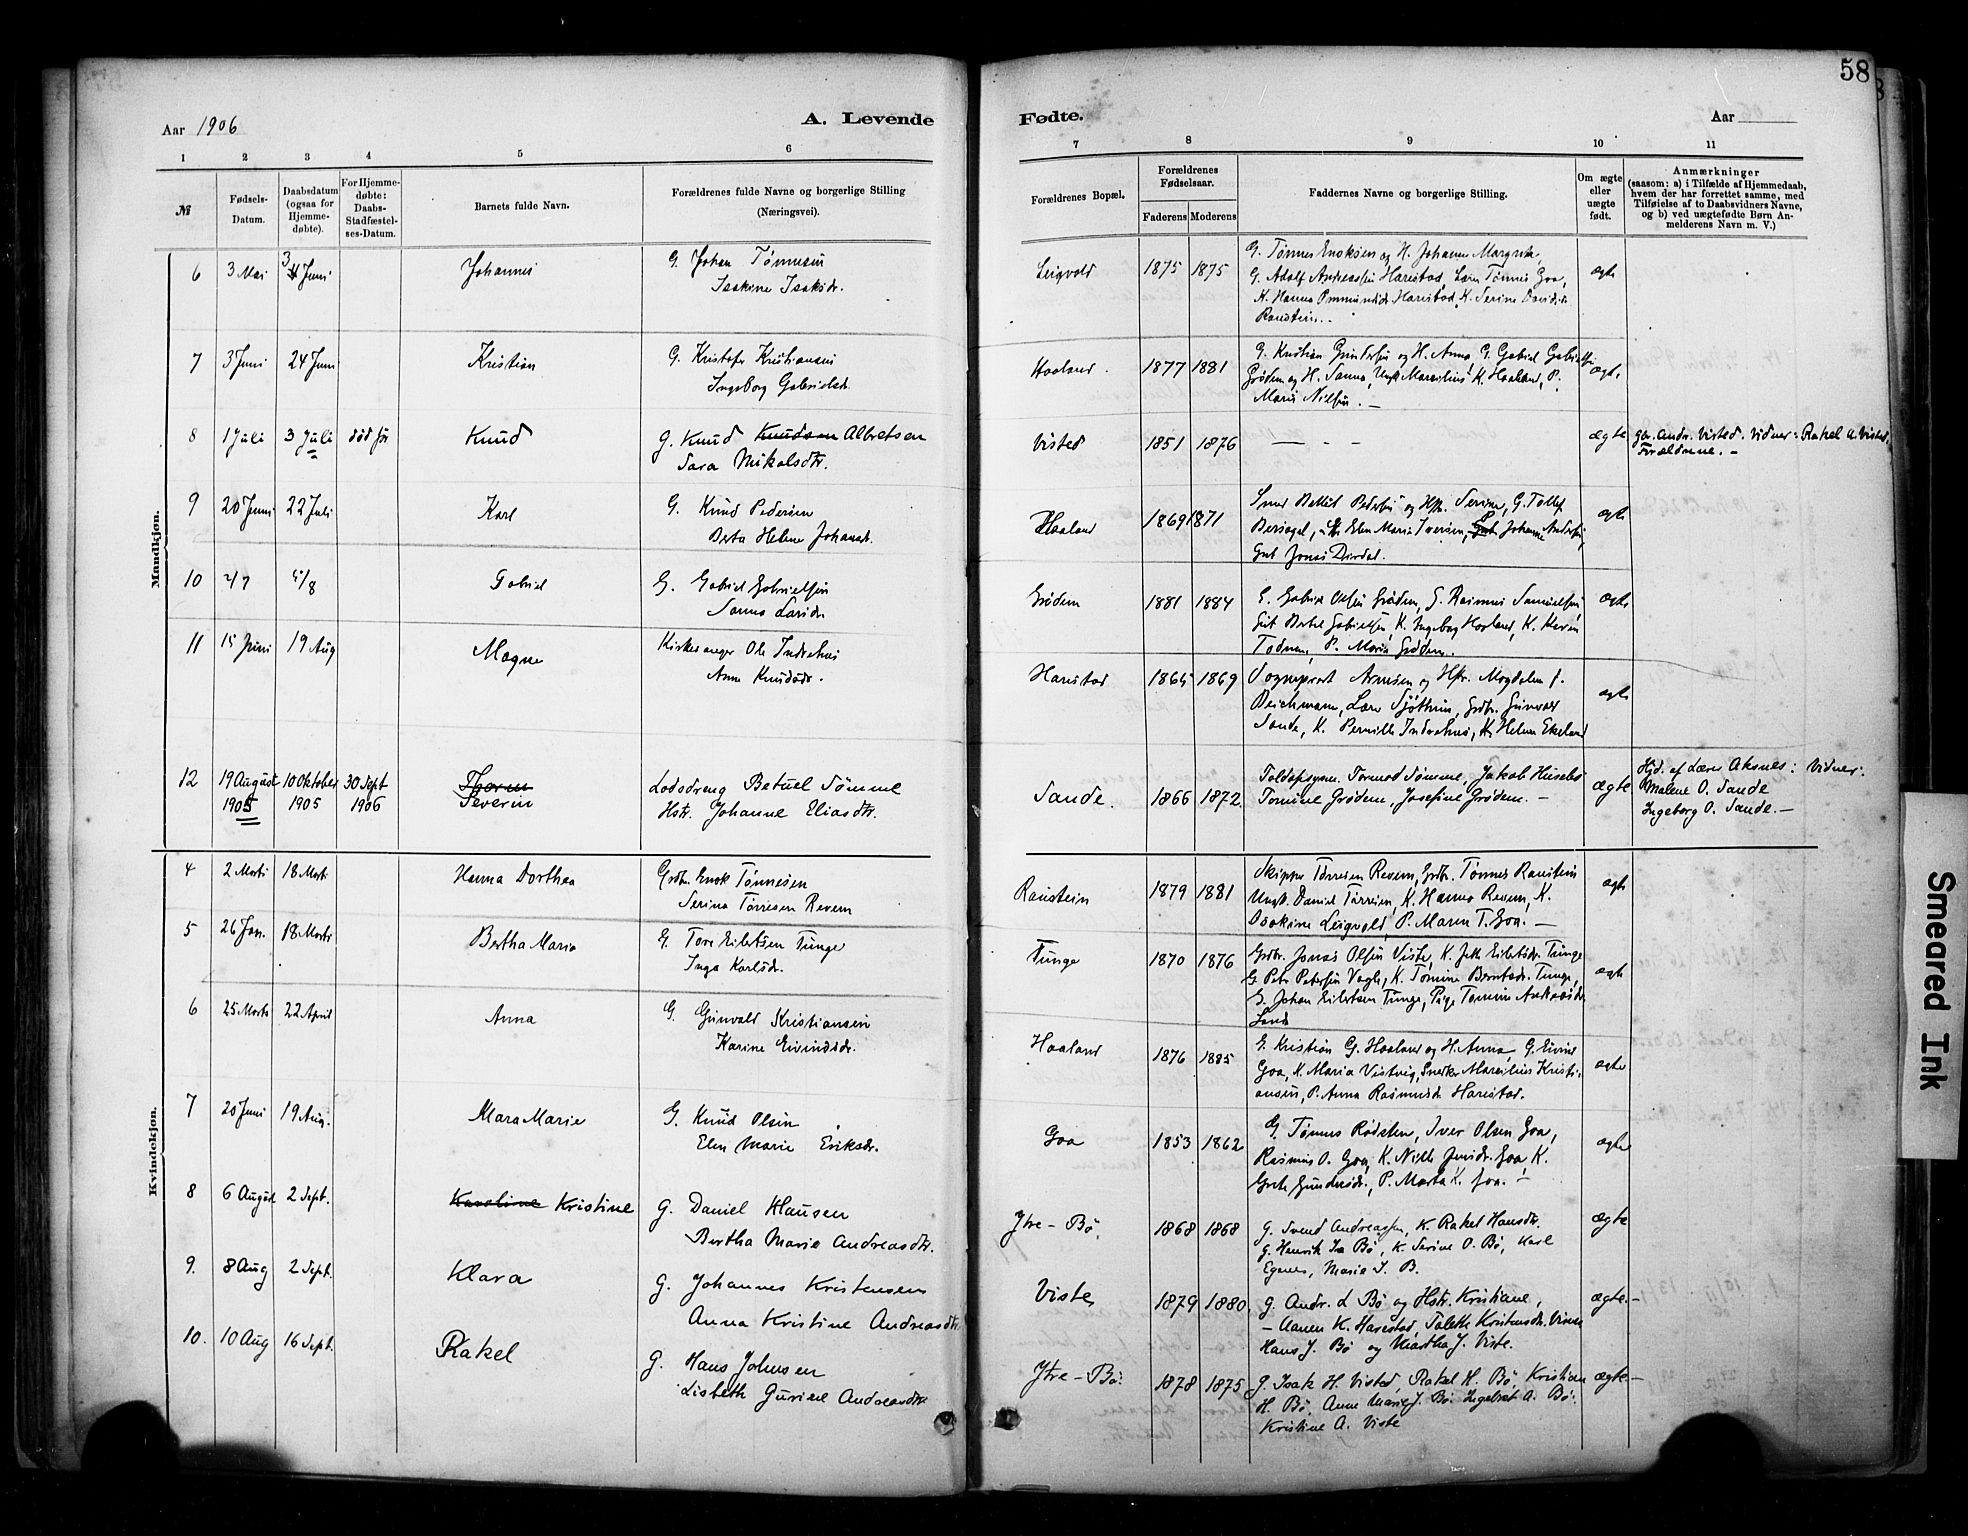 58
Aar 1906
A. Levende
Fødte.
Aar
1 2 3 4 5 6 7 8 9 10 11
№
Fødsels-Datum.
Daabsdatum (ogsaa for Hjemmedøbte).
For Hjemmedøbte: Daabs-Stadfæstelses-Datum.
Barnets fulde Navn.
Forældrenes fulde Navne og borgerlige Stilling (Næringsvei).
Forældrenes Bopæl.
Forældrenes Fødselsaar.
Faderens Moderens
Faddernes Navne og borgerlige Stilling.
Om ægte eller uægte født.
Anmærkninger
(saasom: a) i Tilfælde af Hjemmedaab, hvem der har forrettet samme, med Tilføielse af to Daabsvidners Navne, og b) ved uægtefødte Børn Anmelderens Navn m. V.)
Mandkjøn.
6 3 Mai 3 Juni Johannes G. Johan Tønnesen
Isakine Isaksdr.
Leigvold 1875 1875 G. Tønnes Enoksen og H. Johanne Margrete,
G. Adolf Andreassen Harestad, Lærer Tønnes Goa,
K. Hanna Ommundsdr. Harestad, K. Serine
Raustein.
ægte
7 3 Juni 24 Juni Kristian G. Kristofer Kristiansen
Ingeborg Gabrielsdr.
Haaland 1877 1881 G. Kristian Gundersen og H. Anna, G. Gabriel Gabrielsen
Grødem og H. Sanna, Ungk. Marselius K. Haaland, P.
Marie Nilsen.
ægte
8 1 Juli 3 Juli død før Knud G. Knud Knudsen Albretsen
Sara Mikalsdtr.
Visted 1851 1876 ægte gbr. Andr. Visted. Vidner: Rakel A. Visted,
Forældrene.
9 20 Juni 22 Juli Karl G. Knud Pedersen
Berta Helene Johansdr.
Haaland 1869 1871 Sned. Pedersen og Hst. Serine, G. Tollef
Bersagel, Elen Marie Iversen, Johanne Andersen,
Gut Jonas Dirdal.
ægte
10 2/7 5/8 Gabriel G. Gabriel Gabrielsen
Sanna Larsdr.
Grødem 1881 1884 G. Gabriel Olsen Grødem, G. Rasmus Samuelsen,
Gut Bertel Gabrielsen, K. Ingeborg Haaland, K. Karen
Todnem, P. Maria Grødem.
ægte
11 15 Juni 19 Aug Magne Kirkesanger Ole Indrehus
Anna Knudsdr.
Harestad 1865 1869 Sogneprest Arnesen og Hst. Magdalene f.
Deichmann, Lærer Sjøthun, Grdbr. Gunvald
Sande, K. Pernille Indrehus, K. Helene Ekeland
ægte
12 19 August 1905 10 Oktober 1905 30 Sept 1906 Severin Lodsdreng Betuel Sømme
Hstr. Johanne Eliasdtr.
Sande. 1866 1872 Toldopsynm. Tormod Sømme, Jakob Husebø
Tomine Grødem, Josefine Grødem.
ægte
Hjd. af Lærer Aksnes: Vidner:
Malene O. Sande
Ingeborg O. Sande.
Kvindekjøn.
4 2 Marts 18 Marts Hanna Dorthea Grdbr. Enok Tønnesen
Serina Torresen Revem
Raustein 1879 1881 Skipper Torresen Revem, Grdbr. Tønnes Raustein
Ungk. Daniel Torresen, K. Hanna Revem, K.
Isakine Leigvold, P. Maren T. Goa.
ægte
5 26 Jan. 18 Marts Bertha Marie G. Tore Eilertsen Tunge
Inga Karlsdr.
Tunge 1870 1876 Grdbr. Jonas Olsen Viste, K. Eilertsdr. Tunge
G. Peder Petersen Vagle, K. Tomine Berntsdr. Tunge,
G. Johan Eilertsen Tunge, Pige Tomine Andreasdr.
Sande
ægte
6 25 Marts 22 April Anna G. Gunvald Kristiansen
Karine Eivindsdr.
Haaland 1876 1885 G. Kristian G. Haaland og H. Anna, G. Eivind
Goa, K. Maria Vistvig, Snedker Marselius Kristiansen,
P. Anna Rasmusdr. Harestad.
ægte
7 20 Juni 19 Aug. Mara Marie G. Knud Olsen
Elen Marie Eriksdr.
Goa 1853 1862 G. Tønnes Rødsten, Iver Olsen Goa,
Rasmus O. Goa, K. Nille Jensdr. Goa, K.
Grete Gundersdr., P. Marta K. Goa.
ægte
8 6 August 2 Sept. Karoline Kristine G. Daniel Klausen
Bertha Marie Andreasdtr.
Ytre-Bø. 1868 1868 G. Svend Andreassen, K. Rakel Hansdtr.
G. Henrik Is. Bø, K. Serine O. Bø, Karl
Egenes, Marie I. B.
ægte
9. 8 Aug 2 Sept. Klara G. Johannes Kristensen
Anna Kristine Andreasdtr.
Viste 1879 1880. G. Andr. L Bø og Hstr. Kristiane,
Aanen K. Harestad, Talette Kristensdtr. Viste
Hans J. Bø og Martha J. Viste.
ægte.
10. 10 Aug 16 Sept. Rakel G. Hans Johnsen
Lisbeth Gurine Andreasdtr.
Ytre-Bø. 1878 1875 G. Isak H. Visted, Rakel H. Bø, Kristian
H. Bø, Anne Marie J. Bø. Ingebret A. Bø.
Kristine A. Viste
ægte
Smeared Ink